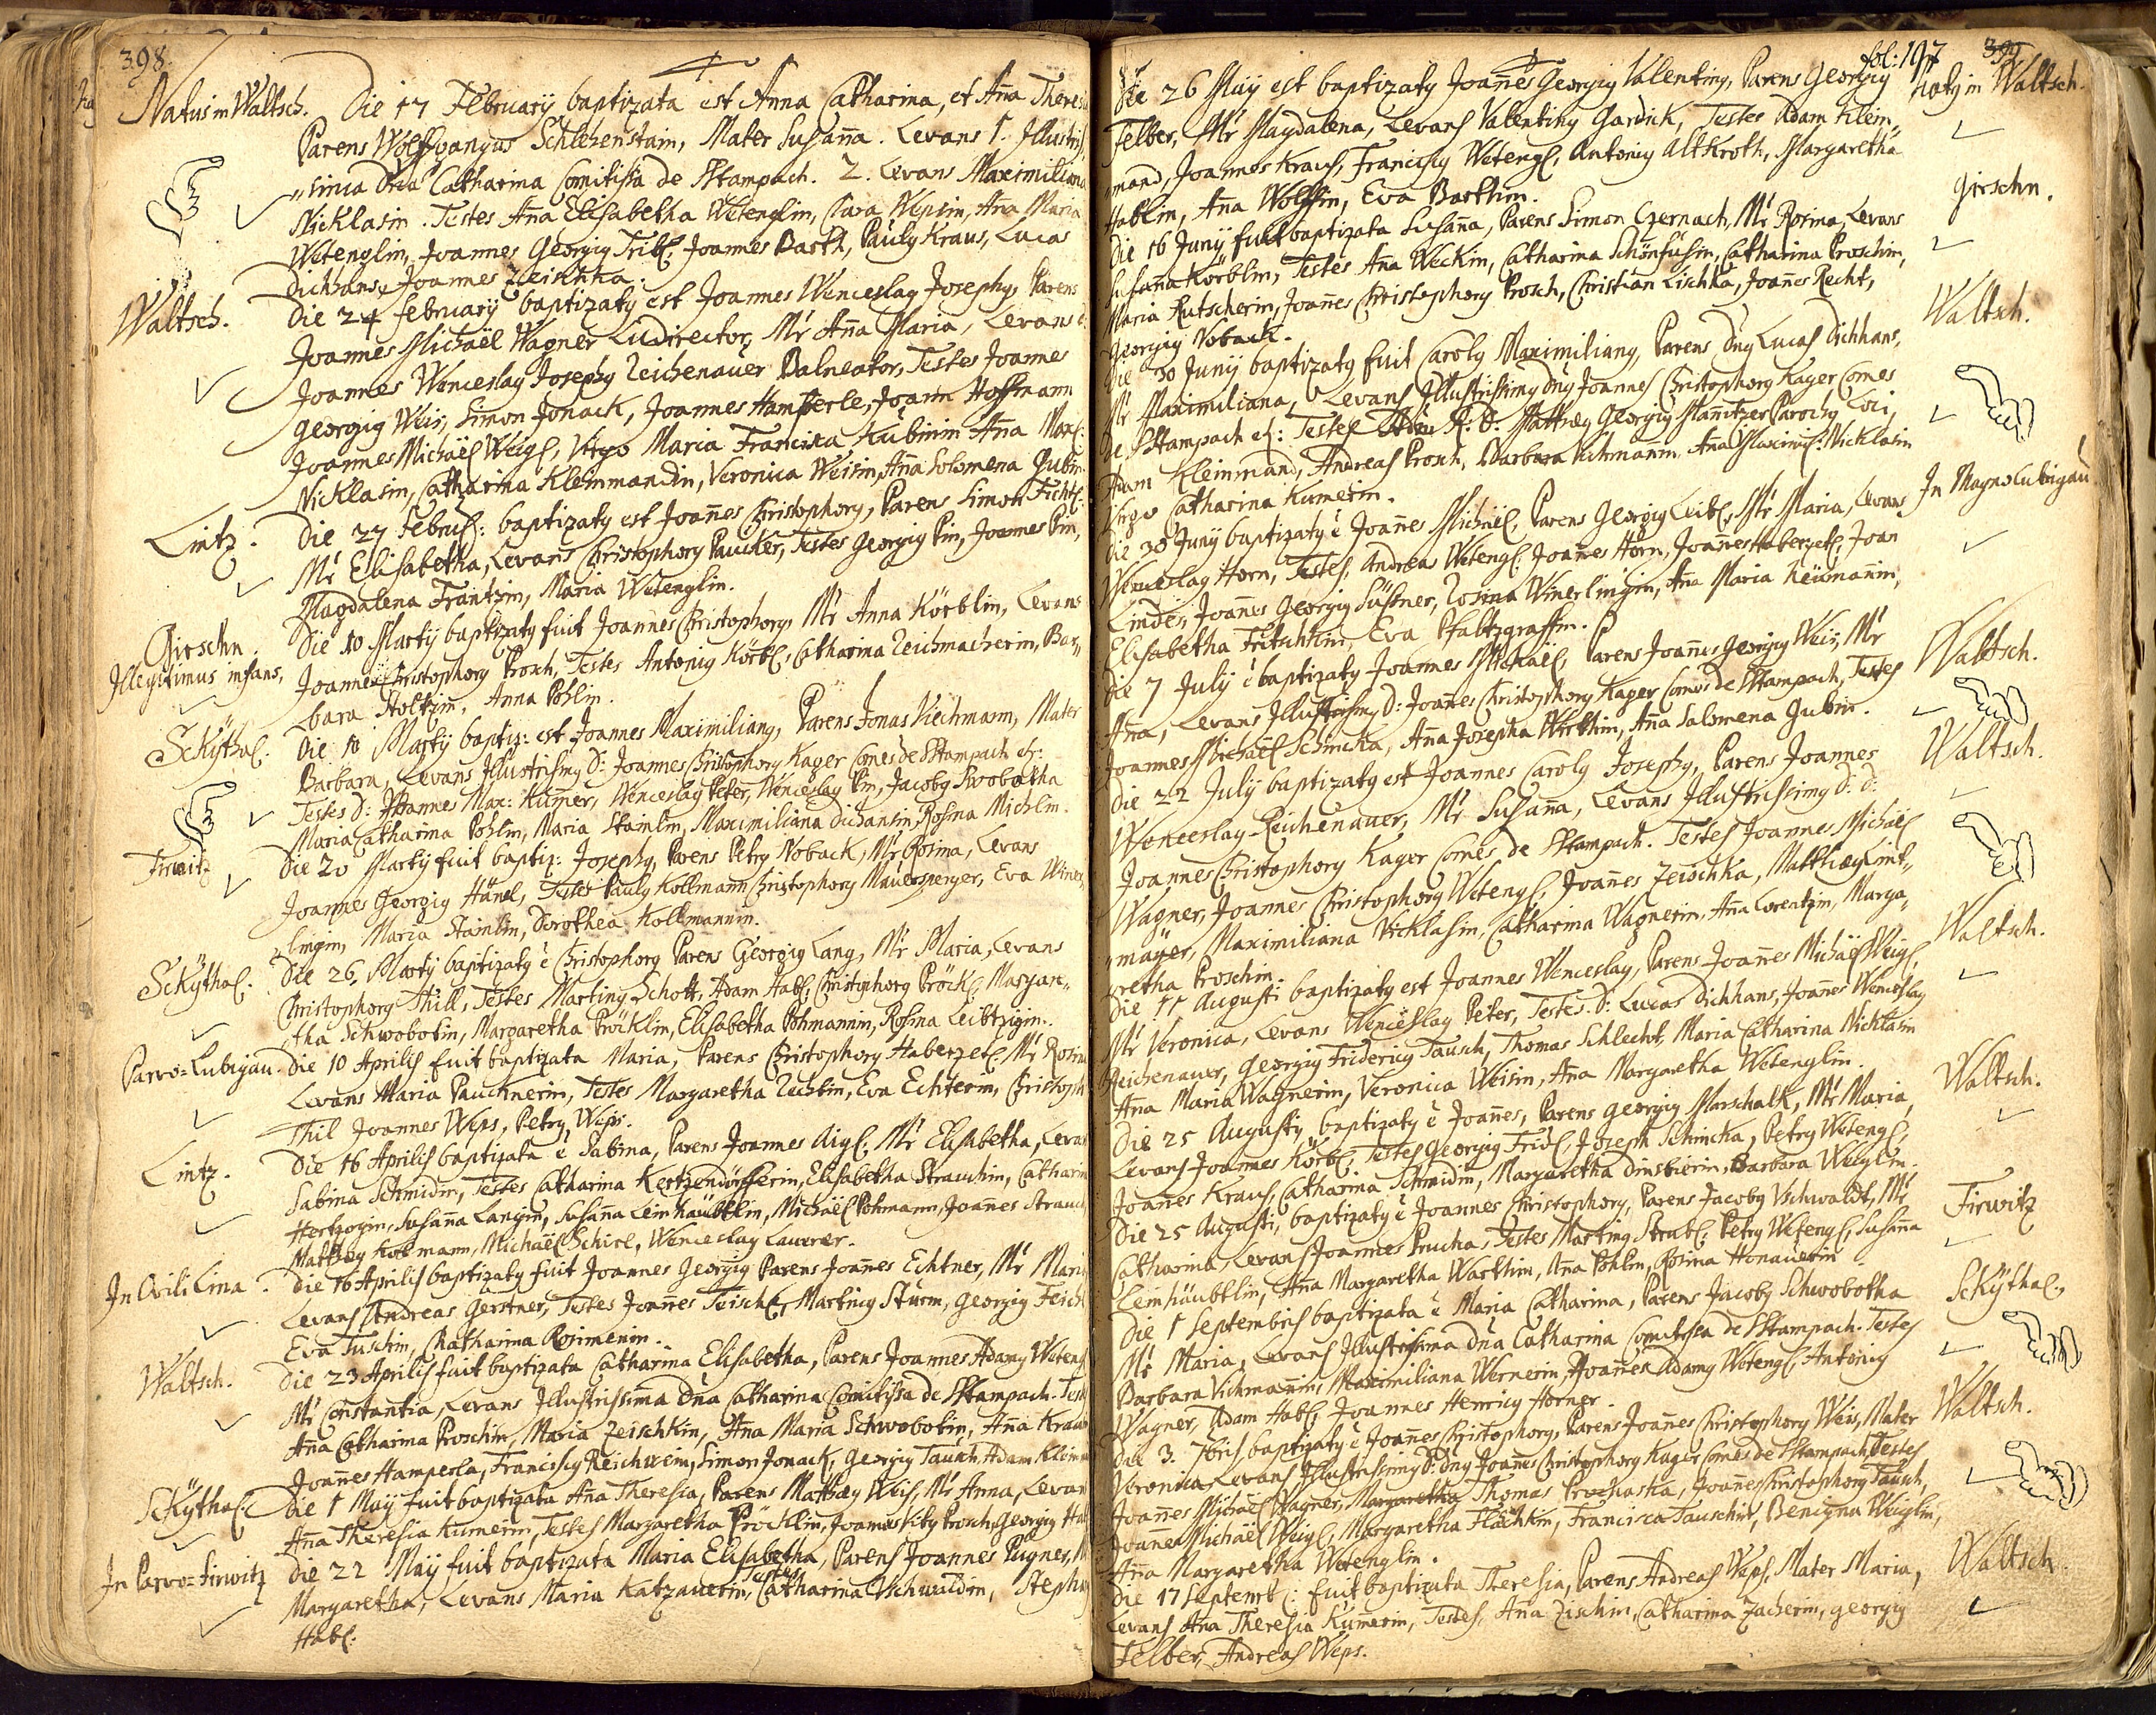 398.
Natus in Waltsch. Die 17 Februarÿ baptizata est Anna Catharina, et Aña Theres
Parens Wolffgangus Schlezenstain, Mater Susaña. Levans 1. Illustris
„sima Dña Catharina Comitissa de Sstampach. 2. Levans Maximiliana
Nicklasin. Testes Aña Elisabetha Wetenglin, Clara Wepsin, Aña Maria
Wetenglin, Joannes Georgiꝰ Tribl, Joannes Barth, Pauluꝰ Kraus, Lucas
Dichhans, Joannes Zeischka.
Waltsch. Die 24 february baptizatꝰ est Joannes Wenceslaꝰ Josephꝰ, Parens
Joannes Michaël Wagner Ludirector, Mr Aña Maria, Levans
Joannes Wenceslaꝰ Josephꝰ Zeichenauer Balneator, Testes Joannes
Georgiꝰ Weis, Simon Jonack, Joannes Hamperle, Joann Hoffmann
Joannes Michaël Weigl, Virgo Maria Francisca Kubinin Aña Max:
Nicklasin, Catharina Kleinmandin, Veronica Weisin, Aña Solomena Gubin
Lintz. Die 27 Febru: baptizatꝰ est Joañes Christophorꝰ, Parens Simon Fichtl
Mr Elisabetha, Levans Christophorꝰ Paucker, Testes Georgiꝰ Pin, Joannes Pin,
Magdalena Frantzin, Maria Wetenglin.
Girschn. Die 10 Martÿ baptizatꝰ fuit Joannes Christophorꝰ, Mr Anna Körblin, Levans
Illegitimus infans, Joannes Christophorꝰ Prosch, Testes Antoniꝰ Körbl, Catharina Zeichmacherin, Bar„
bara Holtzin, Anna Pohlin.
Sckÿthal. Die 18 Martÿ baptiz: est Joannes Maximilianꝰ, Parens Jonas Viechmann, Mater
Barbara, Levans Illustrissimꝰ D: Joannes Christophorꝰ Kager Comes de Sstampach etc:
Testes D: Joannes Max: Kumer, Wenceslaꝰ Peter, Wenceslaꝰ Pin, Jacobꝰ Swobotha
Maria Catharina Pohlin, Maria Stainlin, Maximiliana Dichansin, Rosina Michlin.
Tirwitz Die 20 Martÿ fuit baptiz: Josephꝰ, Parens Petrꝰ Noback, Mr Rosina, Levans
Joannes Georgiꝰ Hänel, Testes Paulꝰ Kollmann Christophorꝰ Mauersperger, Eva Winer
lingin, Maria Stainlin, Dorothea Kollmannin.
Sckÿthal. Die 26. Martÿ baptizatꝰ ē Christophorꝰ Parens Georgiꝰ Lang, Mr Maria, Levans
Christophorꝰ Thill, Testes Martinꝰ Schott, Adam Habl, Christophorꝰ Pröckl, Margare„
tha Schwobotin, Margaretha Pröcklin, Elisabetha Pohmannin, Rosina Leibtzigin.
Parvo=Lubigau. Die 10 Aprilis fuit baptizata Maria, Parens Christophorꝰ Haberzetl, Mr Rosina
Levans Maria Paucknerin, Testes Margaretha Zechtin, Eva Echterin, Christoph
Thil Joannes Weps, Petrꝰ Weps.
Lintz. Die 16 Aprilis baptizata ē Sabina, Parens Joannes Aigl, Mr Elisabetha, Levans
Sabina Schmidin, Testes Catharina Kertzendörfferin, Elisabetha Strauchin, Catharin
Hertzogin, Susaña Langin, Susaña Leimhäubtlin, Michaël Pohmann, Joañes Strauch
Mathꝰ Kolmann, Michaël Schirl, Wenceslaꝰ Laurer.
In Ovili Lina. Die 16 Aprilis baptizatꝰ fuit Joannes Georgiꝰ Parens Joañes Echtner, Mr Maria
Levans Andreas Gerstner, Testes Joañes Teischl, Martinꝰ Sturm, Georgiꝰ Feich
Eva Tuschin, Chatharina Rosimenin.
Waltsch. Die 23 Aprilis fuit baptizata Catharina Elisabetha, Parens Joannes Adamꝰ Weteng
Mr Constantia, Levans Illustrissima Dña Catharina Comitissa de Sstampach. Test
Aña Catharina Proschin, Maria Zeischkin, Aña Maria Schwobotin, Aña Kraus
Joañes Hamperla, Franciscꝰ Reichwein, Simon Jonack, Georgiꝰ Tausch, Adam Kleinm
Sckÿthal. Die 1 Maÿ fuit baptizata Aña Theresia, Parens Mathæꝰ Weis, Mr Anna, Levan
Aña Theresia Kumerin, Testes Margaretha Pröcklin, Joannes Vitꝰ Prosch, Georgiꝰ Hab
In Parvo=Tirwitz Die 22 Maÿ fuit baptizata Maria Elisabetha, Parens Joannes Pugner, M
Testes
Margaretha, Levans Maria Katzauerin, Catharina Vschwaldin, Stepha
Habl.
fol: 197 399
Die 26 Maÿ est baptizatꝰ Joañes Georgiꝰ Valentinꝰ, Parens Georgiꝰ natꝰ in Waltsch.
Felber, Mr Magdalena, Levans Valentinꝰ Gardick, Testes Adam Klein„
mand, Joannes Kraus, Franciscꝰ Wetengl, Antoniꝰ Altkroth, Margaretha
Hablin, Aña Wolffin, Eva Barthin.
Die 16 Junÿ fuit baptizata Susaña, Parens Simon Czernach, Mr Rosina, Levans Girschn.
Susaña Körblin, Testes Aña Weckin, Catharina Schönfusin, Catharina Proschin,
Maria Rutscherin, Joañes Christophorꝰ Prosch, Christian Lischka, Joañes Recht,
Georgiꝰ Noback.
Die 30 Junÿ baptizatꝰ fuit Carolꝰ Maximilianꝰ, Parens Dnꝰ Lucas Dichhans, Waltsch.
Mr Maximiliana, Levans Illustrissimꝰ dnꝰ Joannes Christophorꝰ Kager Comes
de Sstampach etc: Testes R: D: Mathæꝰ Georgiꝰ Mañitzer Parochꝰ Loci,
Adam Kleinmand, Andreas Prosch, Barbara Vichmanin, Aña Maximil: Nicklasin
Virgo Catharina Kumerin.
Die 30 Junÿ baptizatꝰ ē Joañes Michaël, Parens Georgiꝰ Leibl, Mr Maria, Levans In Magno Lubigau
Wenceslaꝰ Horn, Testes, Andreas Wetengl, Joañes Horn, Joañes Haberzetl, Joan
Linder, Joañes Georgiꝰ Süstner, Rosina Winerlingin, Aña Maria Neümañin,
Elisabetha Fritschkin, Eva Pfaltzgraffin.
Die 7 Julÿ ē baptizatꝰ Joannes Michaël, Parens Joañes Georgiꝰ Weis, Mr Waltsch.
Aña, Levans Illustrissimꝰ D: Joañes Christophorꝰ Kager Comes de Sstampach, Testes
Joannes Michaël Schincka, Aña Josepha Wirthin, Aña Salomena Gubin.
Die 22 Julÿ baptizatꝰ est Joannes Carolꝰ Josephꝰ, Parens Joannes Waltsch.
Wenceslaꝰ Zeichenauer, Mr Susaña, Levans Illustrissimꝰ D: D:
Joannes Christophorꝰ Kager Comes de Sstampach. Testes Joannes Michaël
Wagner, Joannes Christophorꝰ Wetengl, Joañes Zeischka, Matthæꝰ Lint„
„mayer, Maximiliana Nicklasin, Catharina Wagnerin, Aña Lorentzin, Marga„
retha Proschin.
Die 11 Augusti baptizatꝰ est Joannes Wenceslaꝰ, Parens Joañes Michaël Weigl, Waltsch.
Mr Veronica, Levans Wenceslaꝰ Peter, Testes. D: Lucas Dichhans, Joañes Wenceslaꝰ
Zeichenauer, Georgiꝰ Fridericꝰ Tausch, Thomas Schlecht, Maria Catharina Nicklasin
Aña Maria Wagnerin, Veronica Weisin, Aña Margaretha Wetenglin.
Die 25 Augusti, baptizatꝰ ē Joañes, Parens Georgiꝰ Marschalk, Mr Maria, Waltsch.
Levans Joannes Körbl, Testes Georgiꝰ Fridl, Joseph Schincka, Petrꝰ Wetengl,
Joañes Kraus, Catharina Schmidin, Margaretha Dinstbierin, Barbara Weiglin.
Die 25 Augusti, baptizatꝰ ē Joannes Christophorꝰ, Parens Jacobꝰ Vschwaldt, Mr Tirwitz
Catharina, Levans Joannes Prucha, Testes Martinꝰ Strubl, Petrꝰ Wetengl, Susaña
Leimhäubtlin, Aña Margaretha Warthin, Aña Pohlin, Rosina Honauerin
Die 1 Septembris baptizata ē Maria Catharina, Parens Jacobꝰ Schwobotha Sckÿthal,
Mr Maria, Levans Illustrissima Dña Catharina Comitissa de Sstampach. Testes
Barbara Vichmañin, Maximiliana Wernerin, Joañes Adamꝰ Wetengl, Antoniꝰ
Wagner, Adam Habl, Joannes Henricꝰ Horner.
Die 3. 7bris baptizatꝰ ē Joañes Christophorꝰ, Parens Joañes Christophorꝰ Weis, Mater Waltsch.
Veronica, Levans Illustrissimꝰ D: dnꝰ Joañes Christophorꝰ Kager Comes de Sstampach, Testes
Joañes Michaël Wagner, Margaretha Thomas Prochaska, Joañes Christophorꝰ Tausch,
Joannes Michaël Weigl, Margaretha Hächtin, Francisca Tauschin, Benigna Weiglin,
Aña Margaretha Wetenglin.
Die 17 Septemb: fuit baptizata Theresia, Parens Andreas Weps, Mater Maria, Waltsch
Levans Aña Theresia Kumerin, Testes, Aña Zischin, Catharina Zacherin, Georgiꝰ
Felber, Andreas Weps.